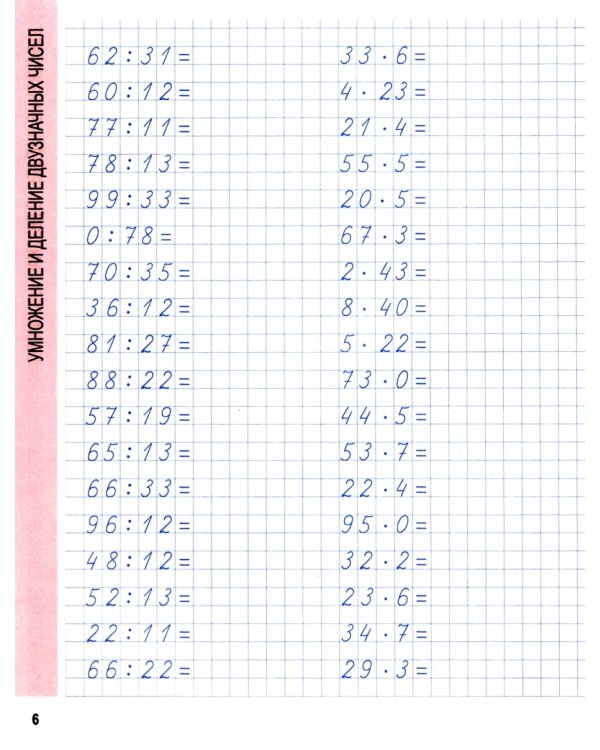 УМНОЖЕНИЕ И ДЕЛЕНИЕ ДВУЗНАЧНЫХ ЧИСЕЛ
62:31=
60:12=
77:11=
78:13=
99:33=
0:78=
70:35=
36:12=
81:27=
88:22=
57:19=
65:13=
66:33=
96:12=
48:12=
52:13=
22:11=
66:22=
33·6=
4·23=
21·4=
55·5=
20·5=
67·3=
2·43=
8·40=
5·22=
73·0=
44·5=
53·7=
22·4=
95·0=
32·2=
23·6=
34·7=
29·3=
6